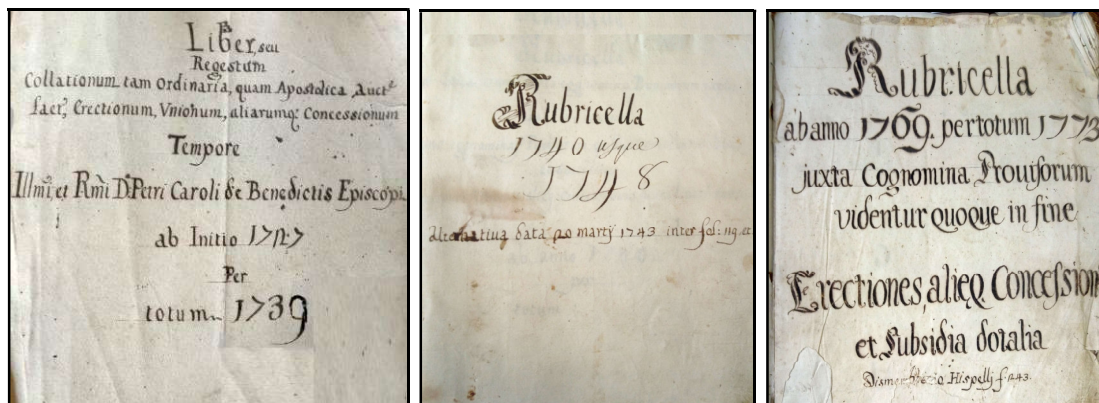 Liber, seu
Regestum
Collationum tam Ordinaria, quam Apostolica Auct.e
fact., Erectionum, Unionum, aliarumq; Concessionum
Tempore
Illmi, et Rmi D. Petri Caroli de Benedictis Episcopi
ab Initio 1727
Per
totum 1739
Rubricella
1740 usque
1748
Alternativa data 20 martj 1743 inter fol: 119. et
Rubricella
ab anno 1769. per totum 1773
juxta Cognomina Provisorum
videntur quoque in fine
Erectiones, alieq. Concession
et Subsidia dotalia
Hispelli f. 243.